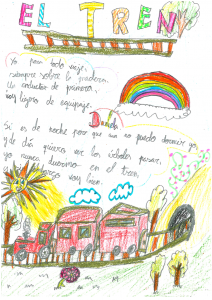 EL TREN
Yo por todo viaje
siempre sobre la madera
Un conductor de primera,
voy ligero de equipaje.
Si es de noche porque no puedo dormir yo
y de día quiero ver los árboles pasar,
yo nunca duermo en el tren
voy bien.